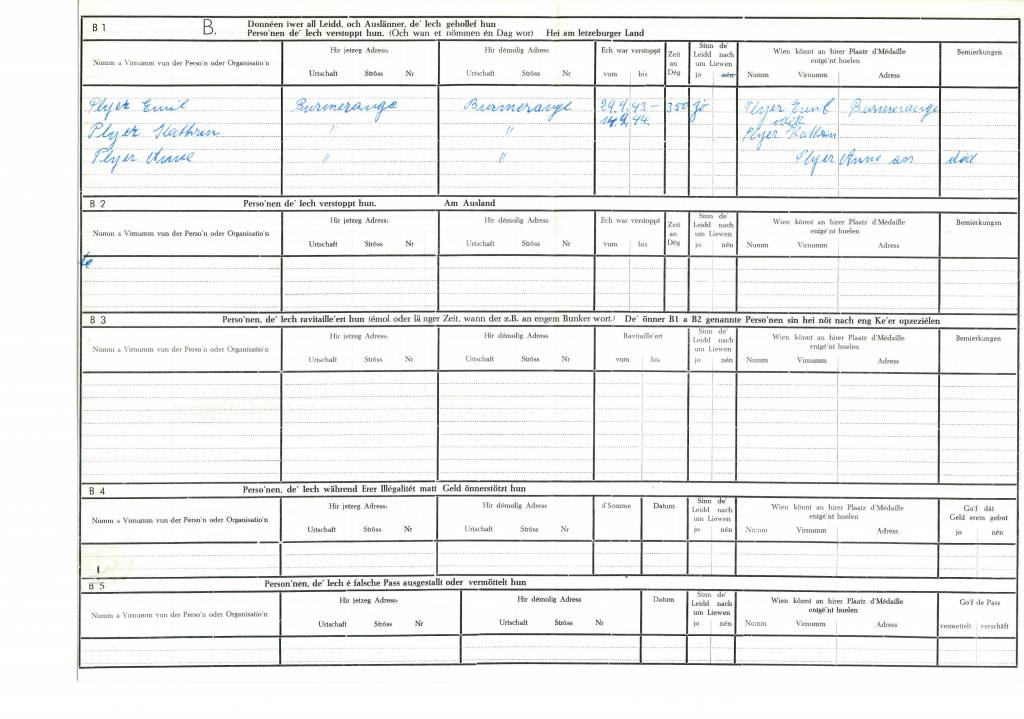 B 1
B.
Donnéen iwer all Leidd, och Auslänner, de' Iech gehollef hun
Perso'nen de' Iech verstoppt hun. (Och wan et nömmen én Dag wor) Hei am letzeburger Land
Numm a Virnumm vun der Perso'n oder Organisatio'n
Hir jetzeg Adress:
Uertschaft Ströss Nr
Hir démolig Adress:
Uertschaft Ströss Nr
Ech war verstoppt
vum bis
Zeit an Dég
Sinn de' Leidd nach um Liewen
jo nén
Wien könnt an hirer Plaatz d'Médaille entgé'nt huelen
Numm Virnumm Adress
Bemierkungen
Plyer Emil Burmerange Burmerange 29.9.43 - 350 jo Plyer Emil Burmerange
14.9.44. oder
Plyer Kathrin " " Plyer Kathrin
Plyer Anne " " Plyer Anne ass död
B 2
Perso'nen de' Iech verstoppt hun. Am Ausland
Numm a Virnumm vun der Perso'n oder Organisatio'n
Hir jetzeg Adress:
Urtschaft Ströss Nr
Hir démolig Adress
Urtschaft Ströss Nr
Ech war verstoppt
vum bis
Zeit an Dég
Sinn de' Leidd nach um Liewen
jo nén
Wien könnt an hirer Plaatz d'Médaille entgé'nt huelen
Numm Virnumm Adress
Bemierkungen
B 3
Perso'nen, de' Iech ravitaille'ert hun (émol oder länger Zeit, wann der z.B. an engem Bunker wort.) De' önner B1 a B2 genannte Perso'nen sin hei nöt nach eng Ke'er opzeziélen
Numm a Virnumm vun der Perso'n oder Organisatio'n
Hir jetzeg Adress:
Urtschaft Ströss Nr
Hir démolig Adress
Urtschaft Ströss Nr
Ravitaille'ert
vum bis
Sinn de' Leidd nach um Liewen
jo nén
Wien könnt an hirer Plaatz d'Médaille entgé'nt huelen
Numm Virnumm Adress
Bemierkungen
B 4
Perso'nen, de' Iech während Erer Illégalitét matt Geld önnerstötzt hun
Numm a Virnumm vun der Perso'n oder Organisatio'n
Hir jetzeg Adress:
Urtschaft Ströss Nr
Hir démolig Adress
Urtschaft Ströss Nr
d'Somme
Datum
Sinn de' Leidd nach um Liewen
jo nén
Wien könnt an hirer Plaatz d'Médaille entgé'nt huelen
Numm Virnumm Adress
Go'f dät Geld erem gebot
jo nén
B 5
Person'nen, de' Iech é falsche Pass ausgestallt oder vermöttelt hun
Numm a Virnumm vun der Perso'n oder Organisatio'n
Hir jetzeg Adress:
Urtschaft Ströss Nr
Hir démolig Adress
Urtschaft Ströss Nr
Datum
Sinn de' Leidd nach um Liewen
jo nén
Wien könnt an hirer Plaatz d'Médaille entgé'nt huelen
Numm Virnumm Adress
Go'f de Pass
vermettelt verschäft